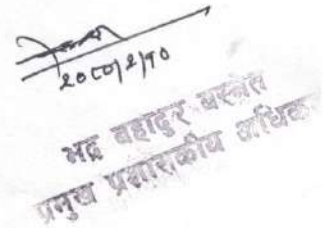 २०८०/२/१०
भद्र बहादुर बस्नेत
प्रमुख प्रशासकीय